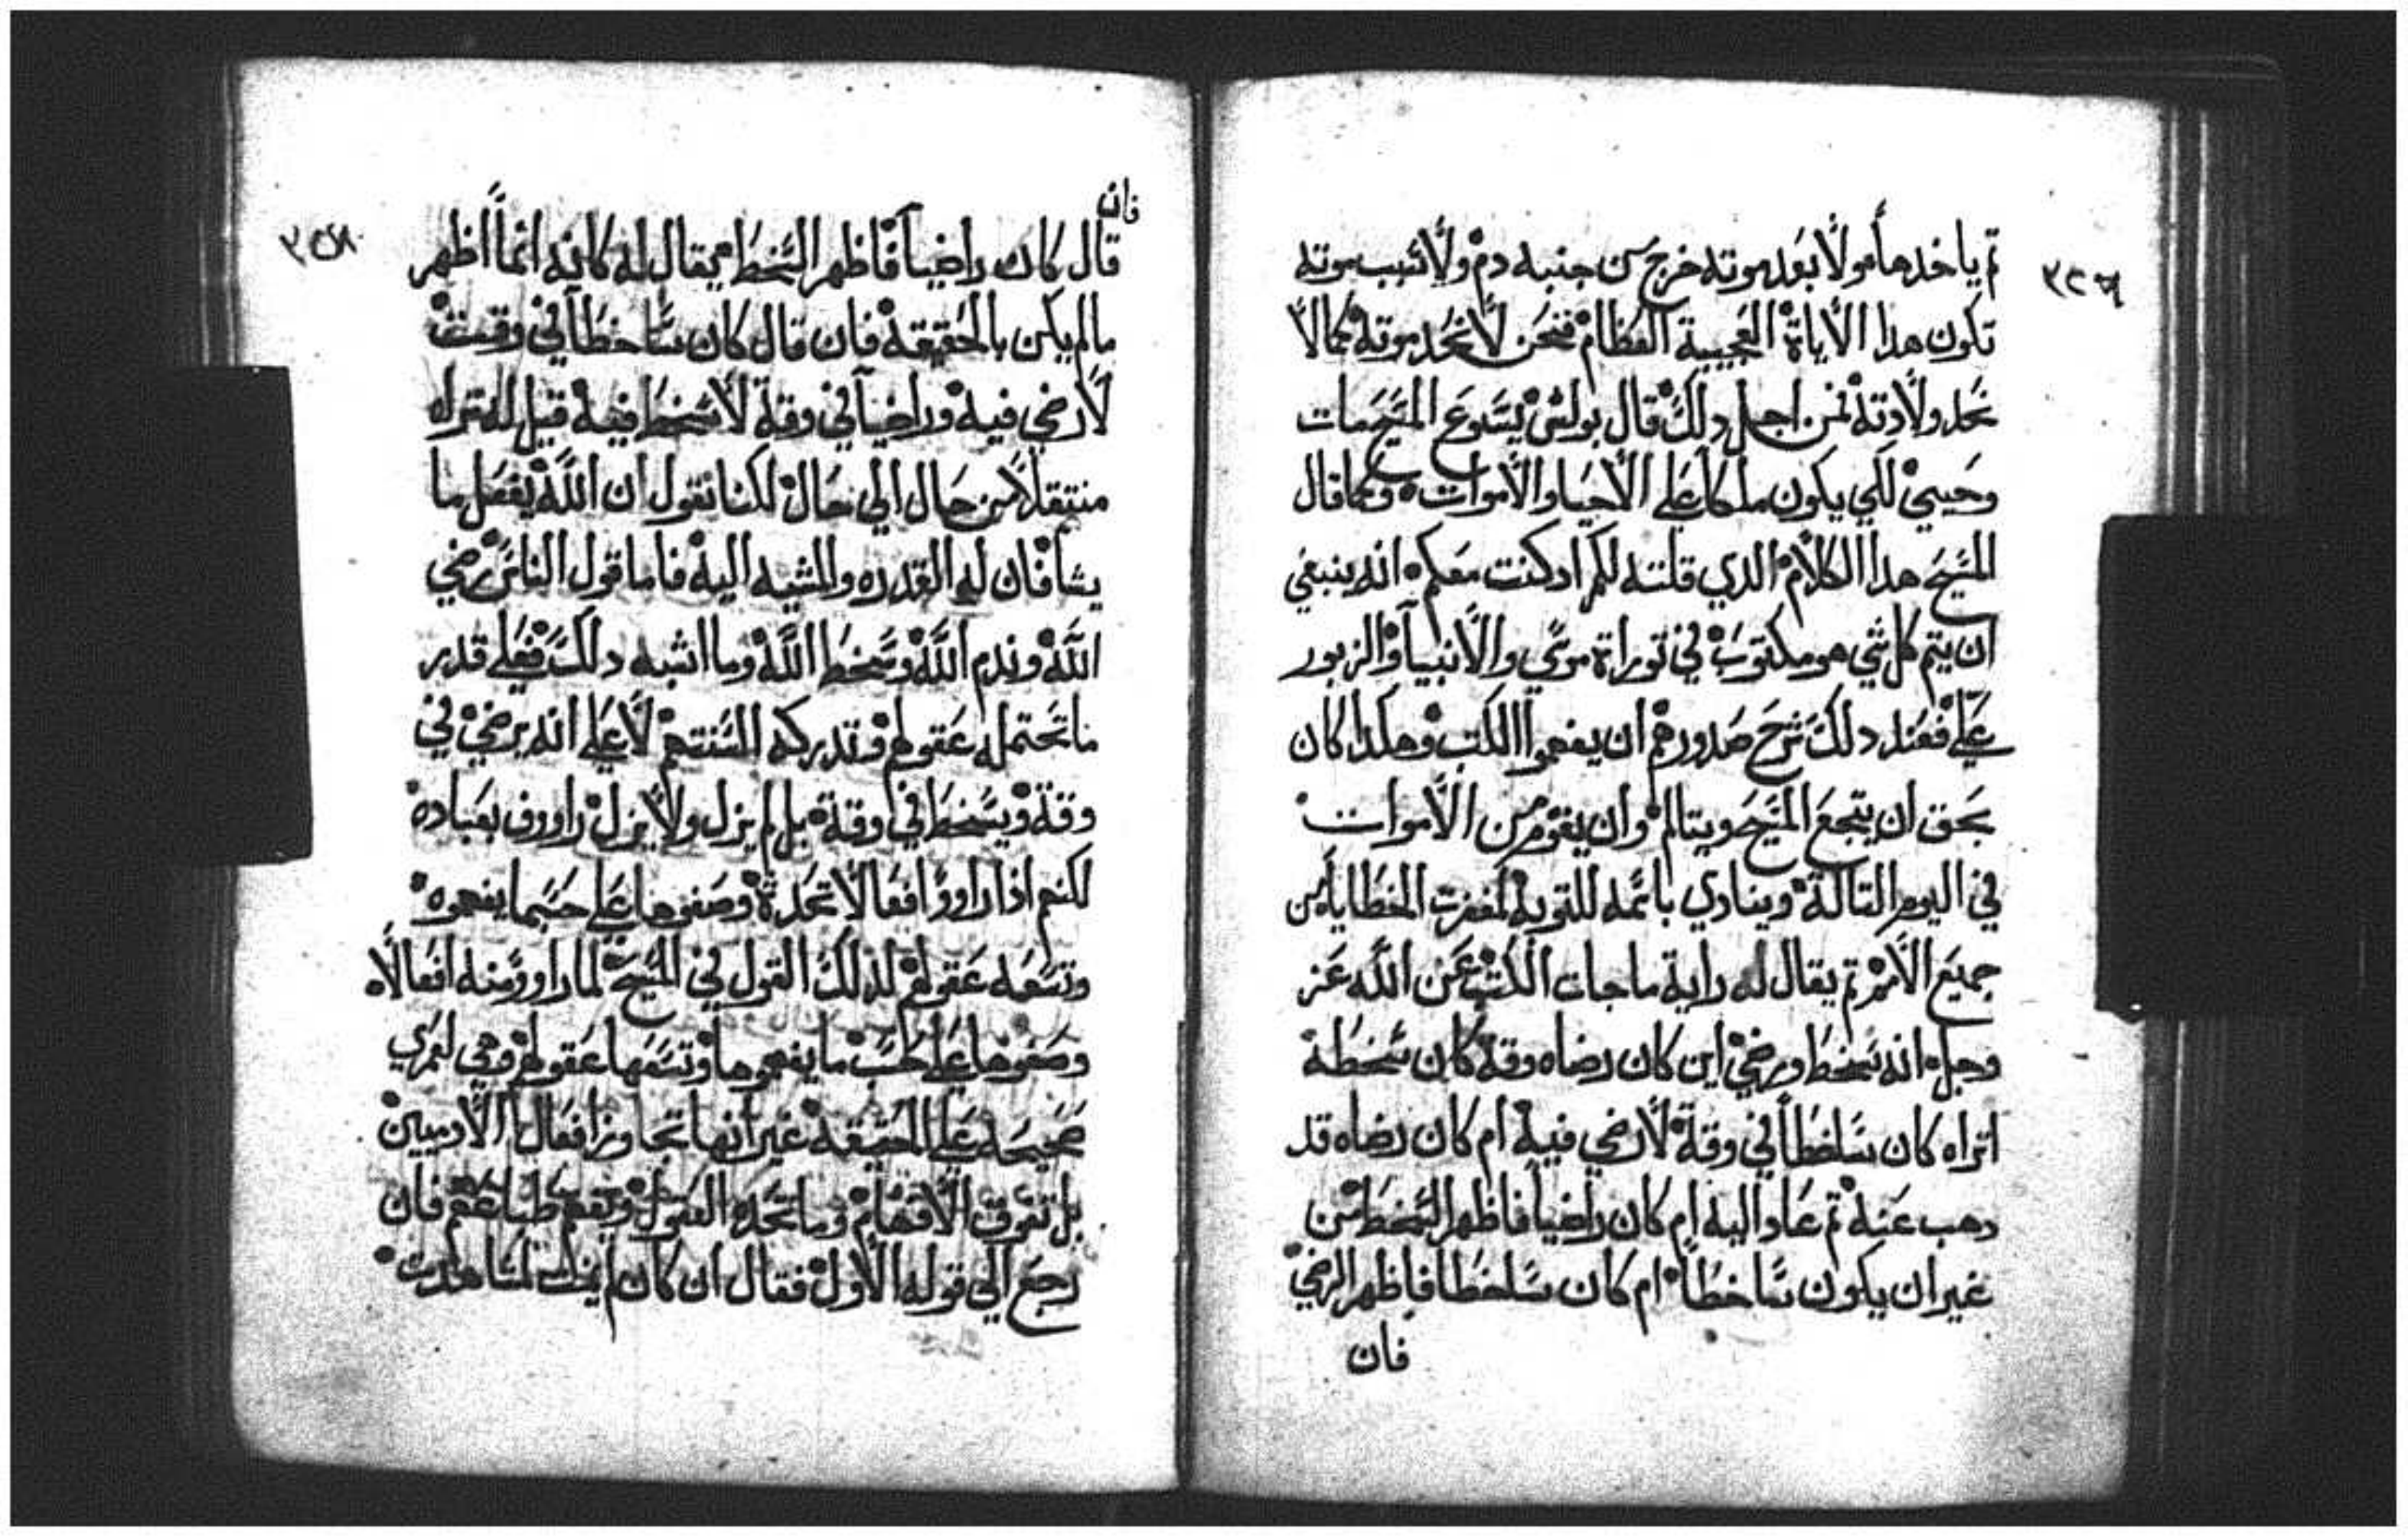 ثم ياخدها مولا بعد موته خرج من جنبه دم ولا سبب موته
تكون هدا الاياة العجيبة العظام فنحن لا نحد موتة كمالا
نحد ولادته فمن اجل دلك قال بولس يسوع المسيح مات
وحيي لكي يكون ملكا على الاحيا والاموات وكما قال
المسيح هدا الكلام الدي قلته لكم اد كنت معكم انه ينبغي
ان يتم كل شي هو مكتوب في توراة موسي والانبيا والزبور
علي فعند دلك شرح صدورهم ان يفهموا الكتب وهكدا كان
بحق ان يتجع المسيح ويتالم وان يقوم من الاموات
في اليوم التالتة وينادي باسمه للتوبه لمغفرت الخطايا من
جميع الامم تم يقال له راية ما جات الكتب عن الله عز
وجل انه سخط ورضي اين كان رضاه وقة كان سخطة
اتراه كان ساخطا في وقة لا رضي فية ام كان رضاه قد
دهب عنه تم عاد اليه ام كان راضيا فاظهر السخط من
غير ان يكون ساخطا ام كان ساخطا فاظهر الرضي
فان
فان
قال كان راضيا فاظهر السخط يقال له كانه انما اظهر
مالم يكن بالحقيقة فان قال كان ساخطا في وقت
لا رضي فية وراضيا في وقة لا سخط فية قيل له تراه
منتقلا من حال الي حال لكنا نقول ان الله يفعل ما
يشا فان له القدره والمشيه الية فاما قول الناس رضي
الله وندم الله وسخط الله وما اشبه دلك فعلي قدر
ما تحتمله عقولهم وتدركه السنتهم لا علي انه يرضي في
وقة ويسخط في وقة بل لم يزل ولا يزل راووف بعبادة
لكنهم اذا راوو افعالا تحدة وصفوها علي حسبما يفهموه
وتسعه عقولهم لذلك القول في المسيح لما راوو منه افعالاه
وصفوها علي حسب ما يفهموها وتسعها عقولهم وهي لعمري
صحيحه علي الحقيقه غير انها تجاوز افعال الادميين
بل تفوق الافهام وما تحده العقول وتفهم طباعهم فان
رجع الي قوله الاول فقال ان كان لم يفت لمشاهدت